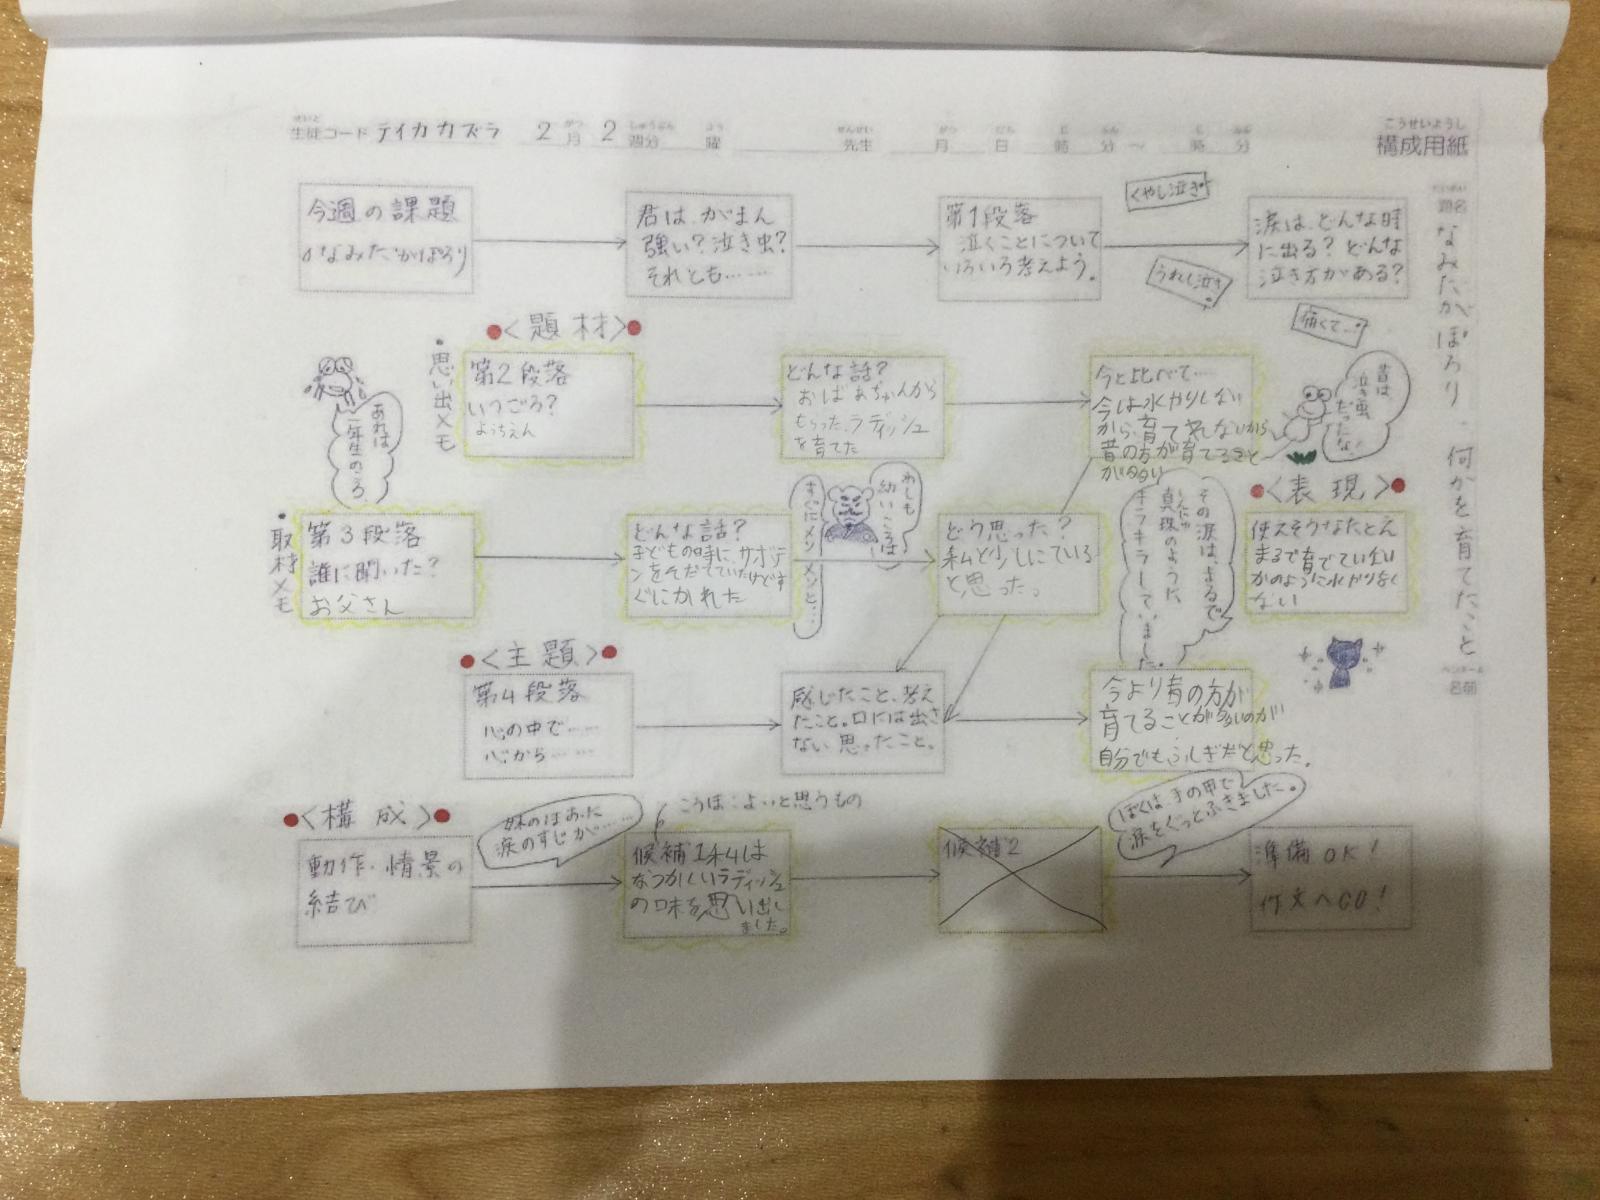 生徒コード テイカカズラ 2月 2週分 曜 先生 月 日 時 分 〜 時 分
構成用紙
題名
なみだがぽろり・何かを育てたこと
名前
今週の課題
なみだがぽろり
君は、がまん
強い?泣き虫?
それとも……
第1段落
泣くことについて
いろいろ考えよう。
くやし泣き
うれし泣き
痛くて…
涙は、どんな時
に出る? どんな
泣き方がある?
<題材>
・思い出メモ
あれは
二年生のころ
第2段落
いつごろ?
ようちえん
どんな話?
おばあちゃんから
もらったラディッシュ
を育てた
今と比べて……
今は水やりしない
から、育て
昔の方が育てること
昔は
泣き虫
だったな。
・取材メモ
第3段落
誰に聞いた?
お父さん
どんな話?
子どもの時に、サボテ
ンをそだてていたけどす
ぐにかれた
わしも
幼いころは
すぐにメソメソと…
どう思った?
私と少しにている
と思った。
その涙は、まるで
真珠のように、
キラキラしていました。
<表現>
使えそうなたとえ
まるで育てていない
かのように水やりをし
ない
<主題>
第4段落
心の中で……
心から……
感じたこと、考え
たこと。口には出さ
ない思ったこと。
今より昔の方が
育てることが多いのが
自分でもふしぎだと思った。
<構成>
動作・情景の
結び
妹のほおに
涙のすじが……
こうほ:よいと思うもの
候補1私は
なつかしいラディッシュ
の味を思い出し
ました。
候補2
ぼくは、手の甲で
涙をぐっとふきました。
準備OK!
作文へGO!